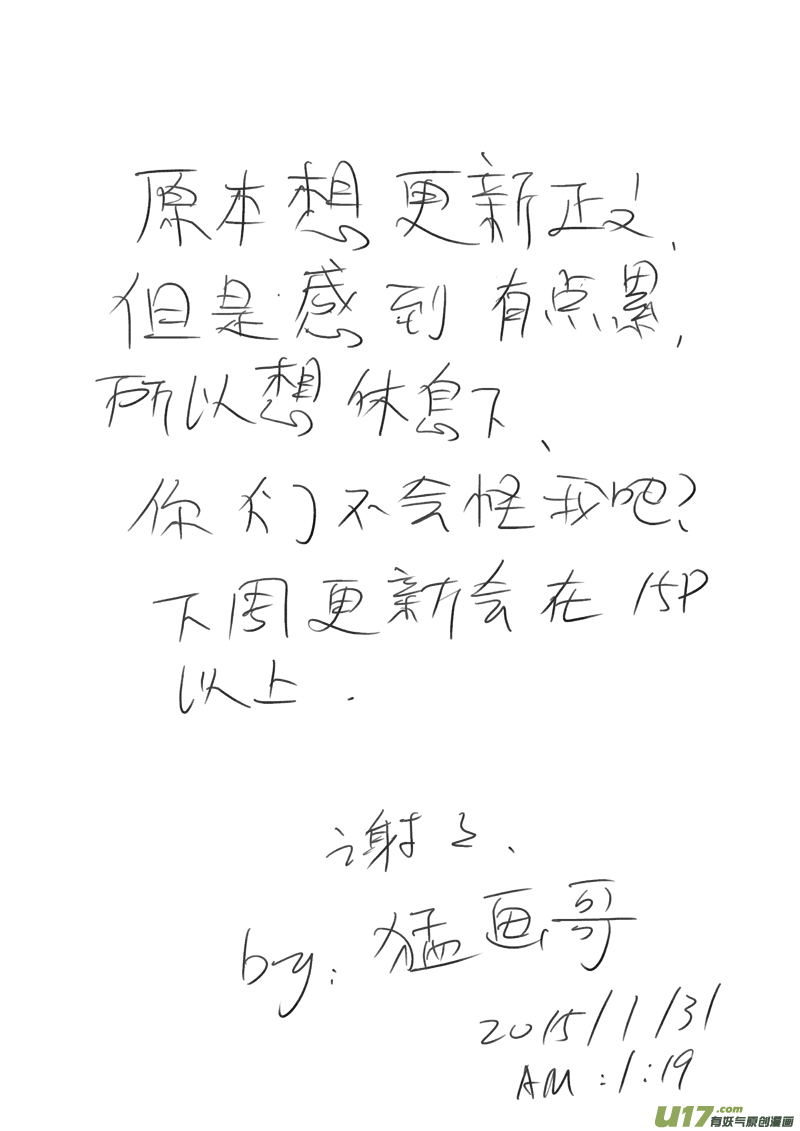 原本想更新正文,
但是感到有点累,
所以想休息下、
你们不会怪我吧?
下周更新会在15P
以上.
谢了、
by:猛画哥
2015/1/31
AM:1:19
U17.com
有妖气原创漫画